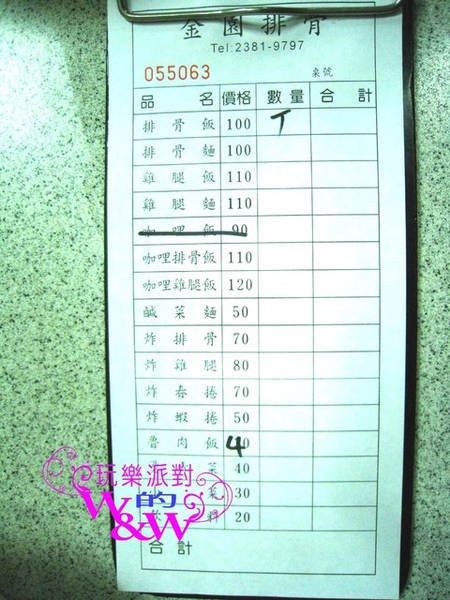 金園排骨
Tel:2381-9797
055063 桌號
品名 價格 數量 合計
排骨飯 100 丅
排骨麵 100
雞腿飯 110
雞腿麵 110
咖哩飯 90
咖哩排骨飯 110
咖哩雞腿飯 120
鹹菜麵 50
炸排骨 70
炸雞腿 80
炸春捲 70
炸蝦捲 50
魯肉飯 40
菜 40
菜 30
料 20
合計
玩樂派對
的
W&W